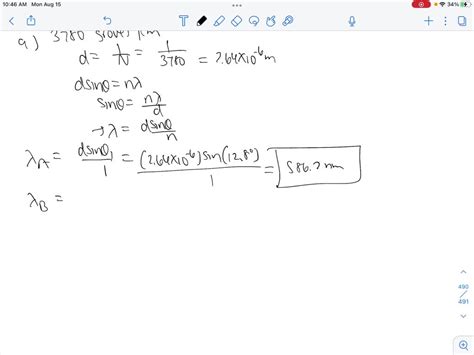 10:46 AM Mon Aug 15
34%
a) 3780
d = 1/N = 1/3780 = 2.64×10⁻⁶ m
dsinθ = nλ
sinθ = nλ/d
→ λ = dsinθ/n
λ_A = dsinθ₁/1 = (2.64×10⁻⁶)sin(12.8°)/1 =
λ_B =
490
/
491